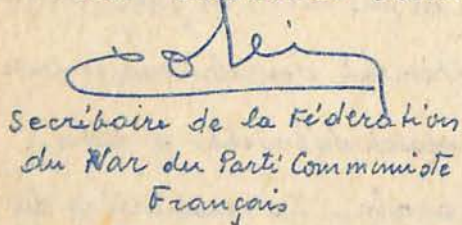 Secrétaire de la Fédération
du Var du Parti Communiste
Français